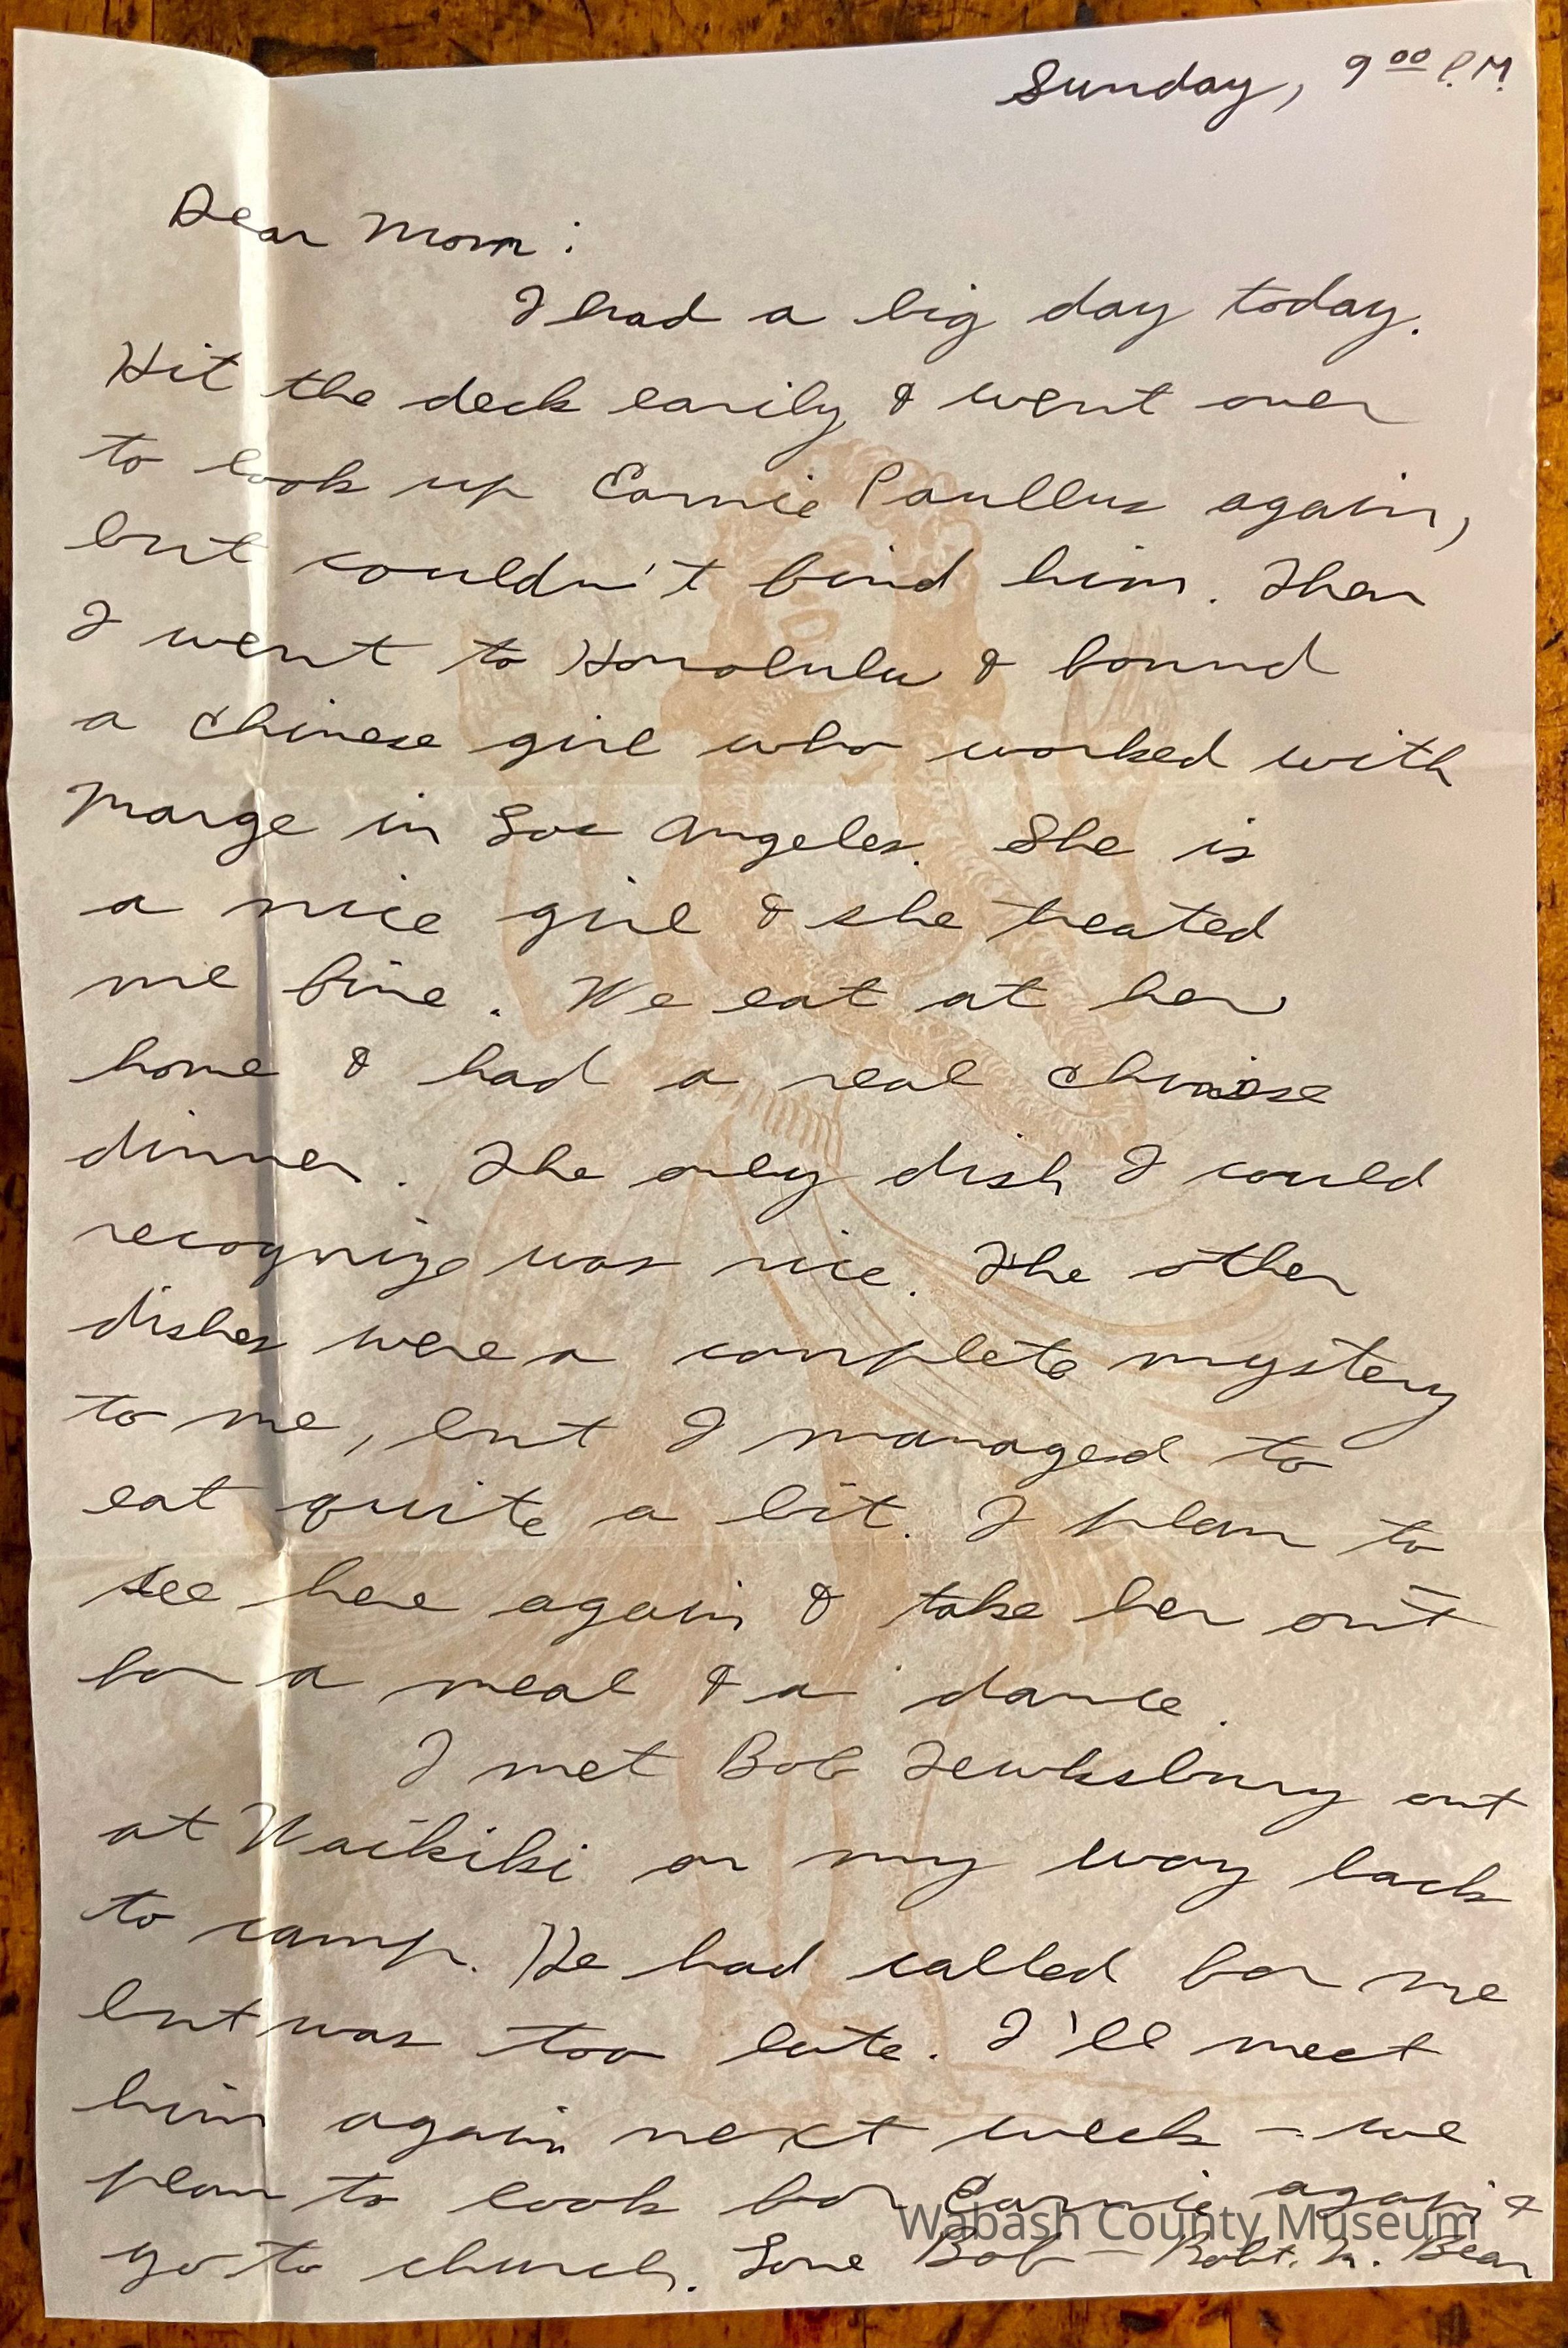 Sunday, 9 00 P.M.
Dear Mom:
I had a big day today.
Hit the deck earily & went over
to look up Earnie Paullus again,
but couldn't find him. Then
I went to Honolulu & found
a Chinese girl who worked with
Marge in Los Angeles. She is
a nice girl & she treated
me fine. We eat at her
home & had a real Chinese
dinner. The only dish I could
recognize was rice. The other
dishes were a complete mystery
to me, but I managed to
eat quite a bit. I plan to
see here again & take her out
for a meal & a dance.
I met Bob Tewksbury out
at Waikiki on my way back
to camp. He had called for me
but was too late. I'll meet
him again next week - we
plan to look for Earnie again &
go to church. Love Bob - Robt. M. Bear
Wabash County Museum